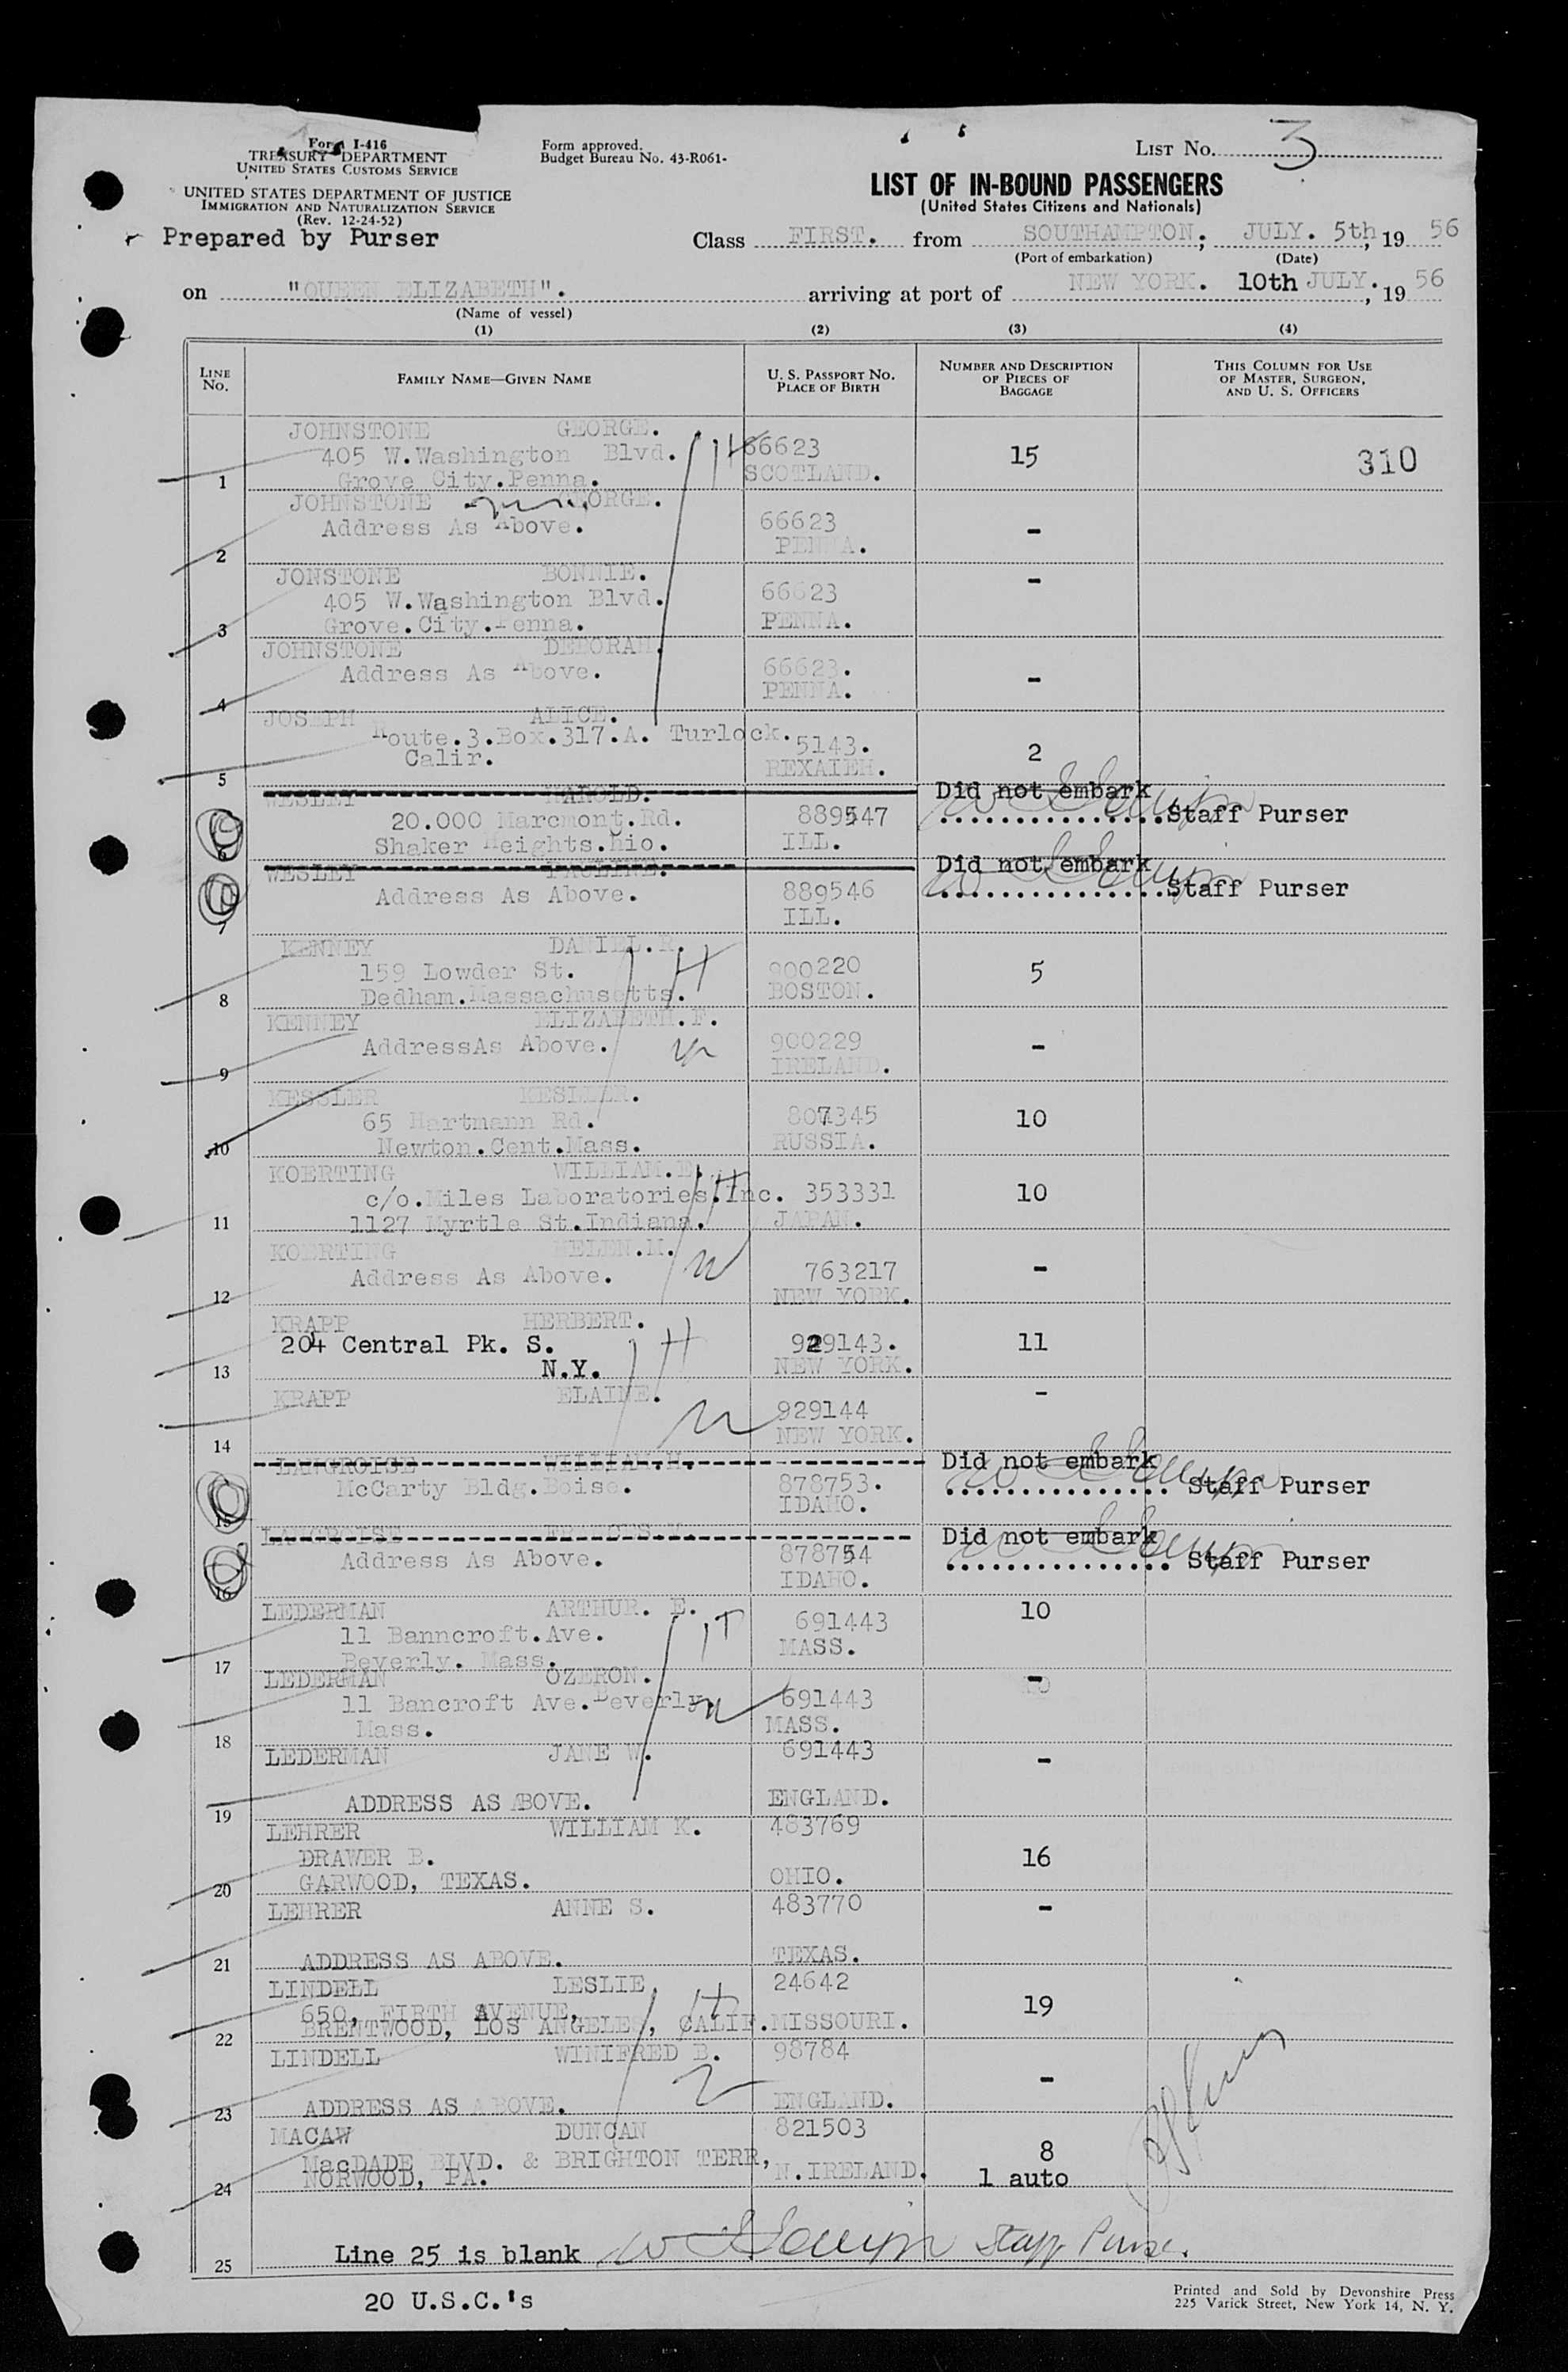 LIST No. 3
Form I-416
TREASURY DEPARTMENT
UNITED STATES CUSTOMS SERVICE
Form approved.
Budget Bureau No. 43-R061-
UNITED STATES DEPARTMENT OF JUSTICE
IMMIGRATION AND NATURALIZATION SERVICE
(Rev. 12-24-52)
LIST OF IN-BOUND PASSENGERS
(United States Citizens and Nationals)
Prepared by Purser
Class FIRST. from SOUTHAMPTON; JULY. 5th, 19 56
(Port of embarkation) (Date)
on "QUEEN ELIZABETH". arriving at port of NEW YORK. 10th JULY., 19 56
(Name of vessel)
(1) (2) (3) (4)
LINE No. FAMILY NAME—GIVEN NAME U. S. PASSPORT No. PLACE OF BIRTH NUMBER AND DESCRIPTION OF PIECES OF BAGGAGE THIS COLUMN FOR USE OF MASTER, SURGEON, AND U. S. OFFICERS
JOHNSTONE GEORGE.
405 W.Washington Blvd. 66623 15 310
1 Grove City.Penna. SCOTLAND.
JOHNSTONE GEORGE.
Address As Above. 66623 -
2 PENNA.
JONSTONE BONNIE. -
405 W.Washington Blvd. 66623
3 Grove.City.Penna. PENNA.
JOHNSTONE DEBORAH.
Address As Above. 66623. -
4 PENNA.
JOSEPH ALICE.
Route.3.Box.317.A. Turlock. 5143. 2
5 Calir. REXAIEH.
WESLEY HAROLD. Did not embark
20.000 Marcmont.Rd. 889547 Staff Purser
6 Shaker Heights.hio. ILL.
WESLEY PAULINE. Did not embark
Address As Above. 889546 Staff Purser
7 ILL.
KENNEY DANIEL.R.
159 Lowder St. H 900220 5
8 Dedham.Massachusetts. BOSTON.
KENNEY ELIZABETH.F.
AddressAs Above. W 900229 -
9 IRELAND.
KESSLER KESLLER.
65 Hartmann Rd. 807345 10
10 Newton.Cent.Mass. RUSSIA.
KOERTING WILLIAM.E.
c/o.Miles Laboratories.Inc. 353331 10
11 1127 Myrtle St.Indiana. JAPAN.
KOERTING HELEN.M.
Address As Above. W 763217 -
12 NEW YORK.
KRAPP HERBERT.
204 Central Pk. S. H 929143. 11
13 N.Y. NEW YORK.
KRAPP ELAINE. -
W 929144
14 NEW YORK.
LANGROISE WILLIAM.H. Did not embark
McCarty Bldg.Boise. 878753. Staff Purser
15 IDAHO.
LANGROISE Did not embark
Address As Above. 878754 Staff Purser
16 IDAHO.
LEDERMAN ARTHUR. E. 10
11 Banncroft.Ave. H 691443
17 Beverly. Mass. MASS.
LEDERMAN OZERON. -
11 Bancroft Ave.Beverly. W 691443
18 Mass. MASS.
LEDERMAN JANE W. 691443 -
19 ADDRESS AS ABOVE. ENGLAND.
LEHRER WILLIAM K. 483769
DRAWER B. 16
20 GARWOOD, TEXAS. OHIO.
LEHRER ANNE S. 483770 -
21 ADDRESS AS ABOVE. TEXAS.
LINDELL LESLIE, 24642
650, FIRTH AVENUE, H 19
22 BRENTWOOD, LOS ANGELES, CALIF. MISSOURI.
LINDELL WINIFRED B. 98784
W -
23 ADDRESS AS ABOVE. ENGLAND.
MACAW DUNCAN 821503
MacDADE BLVD. & BRIGHTON TERR, 8
24 NORWOOD, PA. N.IRELAND. 1 auto
25 Line 25 is blank Staff Purser.
20 U.S.C.'s
Printed and Sold by Devonshire Press
225 Varick Street, New York 14, N. Y.